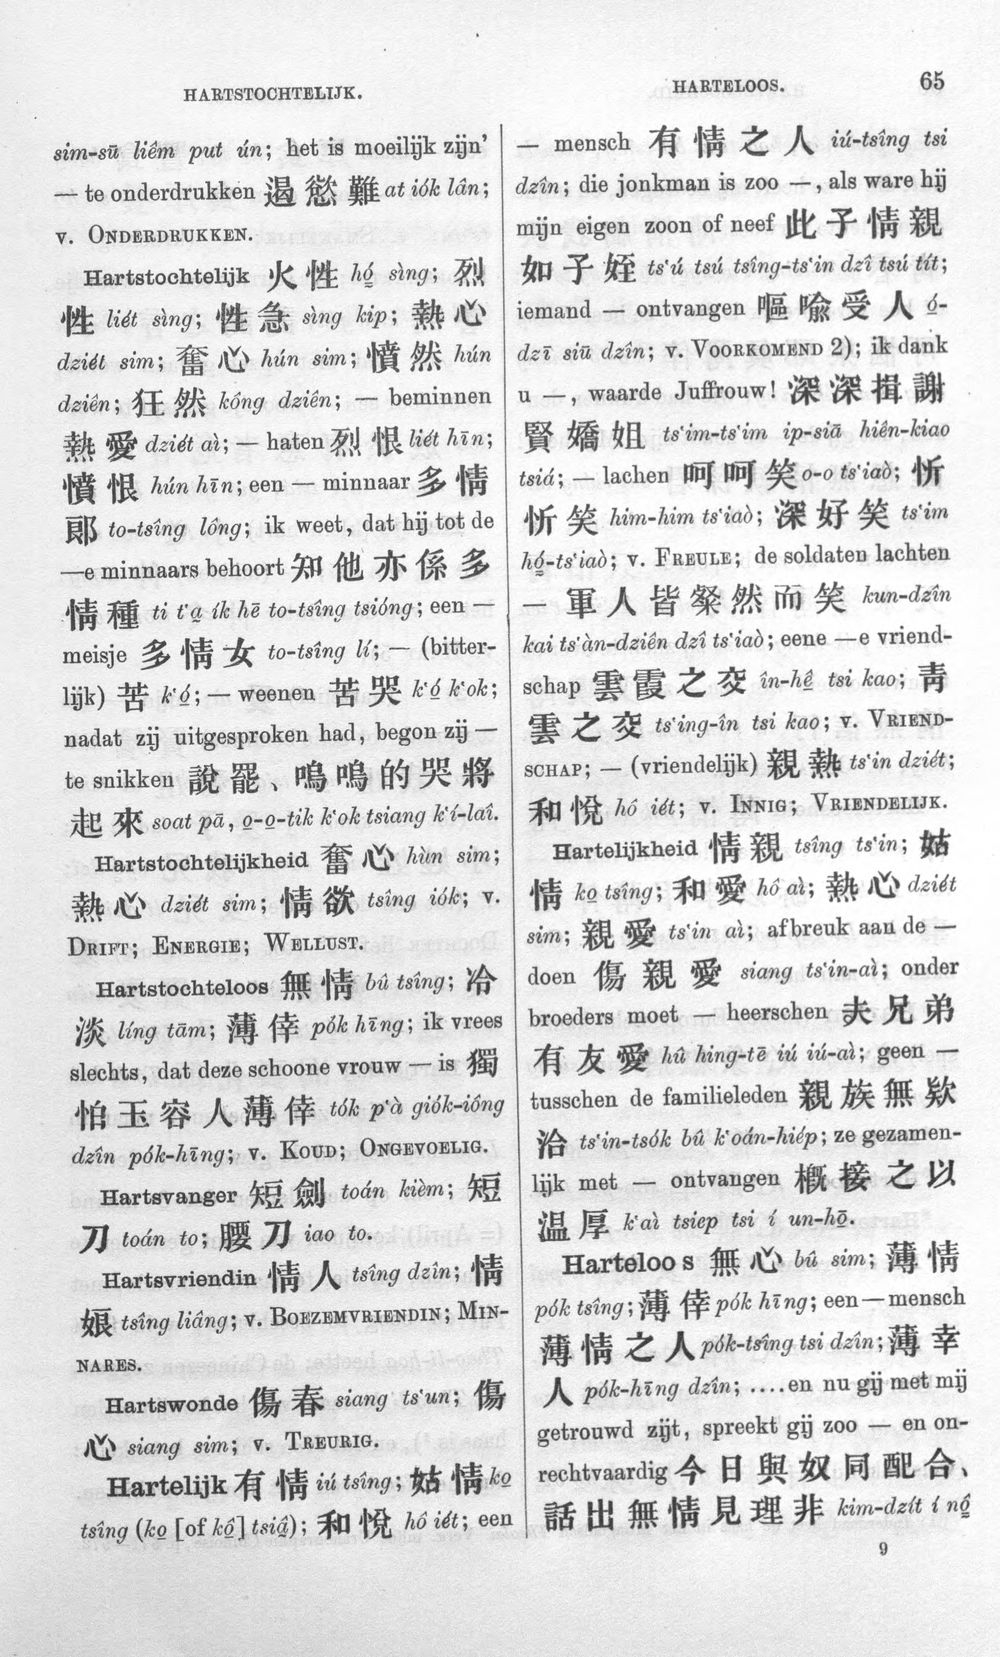 HARTSTOCHTELIJK.
HARTELOOS.
65
sim-sū liêm put ún; het is moeilijk zijn’
— te onderdrukken 遏慾難 at iók lân;
v. ONDERDRUKKEN.
Hartstochtelijk 火性 hó̱ sìng; 烈
性 liét sìng; 性急 sìng kip; 熱心
dziét sim; 奮心 hún sim; 憤然 hún
dziên; 狂然 kông dziên; — beminnen
熱愛 dziét aì; — haten 烈恨 liét hīn;
憤恨 hún hīn; een — minnaar 多情
郎 to-tsîng lông; ik weet, dat hij tot de
—e minnaars behoort 知他亦係多
情種 ti t‘a̱ ík hē to-tsîng tsióng; een —
meisje 多情女 to-tsîng lí; — (bitter-
lijk) 苦 k‘ó̱; — weenen 苦哭 k‘ó̱ k‘ok;
nadat zij uitgesproken had, begon zij —
te snikken 說罷、嗚嗚的哭將
起來 soat pā, o̱-o̱-tik k‘ok tsiang k‘í-laî.
Hartstochtelijkheid 奮心 hùn sim;
熱心 dziét sim; 情欲 tsîng iók; v.
DRIFT; ENERGIE; WELLUST.
Hartstochteloos 無情 bû tsîng; 冷
淡 líng tām; 薄倖 pók hīng; ik vrees
slechts, dat deze schoone vrouw — is 獨
怕玉容人薄倖 tók p‘à giók-iông
dzîn pók-hīng; v. KOUD; ONGEVOELIG.
Hartsvanger 短劍 toán kièm; 短
刀 toán to; 腰刀 iao to.
Hartsvriendin 情人 tsîng dzîn; 情
娘 tsîng liâng; v. BOEZEMVRIENDIN; MIN-
NARES.
Hartswonde 傷春 siang ts‘un; 傷
心 siang sim; v. TREURIG.
Hartelijk 有情 iú tsîng; 姑情 ko̱
tsîng (ko̱ [of kô̱] tsiâ̱); 和悅 hô iét; een
— mensch 有情之人 iú-tsîng tsi
dzîn; die jonkman is zoo —, als ware hij
mijn eigen zoon of neef 此子情親
如子姪 ts‘ú tsú tsîng-ts‘in dzî tsú tít;
iemand — ontvangen 嘔喻受人 ó̱-
dzī siū dzîn; v. VOORKOMEND 2); ik dank
u —, waarde Juffrouw! 深深揖謝
賢嬌姐 ts‘im-ts‘im ip-siā hiên-kiao
tsiá; — lachen 呵呵笑 o-o ts‘iaò; 忻
忻笑 him-him ts‘iaò; 深好笑 ts‘im
hó̱-ts‘iaò; v. FREULE; de soldaten lachten
— 軍人皆粲然而笑 kun-dzîn
kai ts‘àn-dziên dzî ts‘iaò; eene —e vriend-
schap 雲霞之交 în-hê̱ tsi kao; 靑
雲之交 ts‘ing-în tsi kao; v. VRIEND-
SCHAP; — (vriendelijk) 親熱 ts‘in dziét;
和悅 hô iét; v. INNIG; VRIENDELIJK.
Hartelijkheid 情親 tsîng ts‘in; 姑
情 ko̱ tsîng; 和愛 hô aì; 熱心 dziét
sim; 親愛 ts‘in aì; afbreuk aan de —
doen 傷親愛 siang ts‘in-aì; onder
broeders moet — heerschen 夫兄弟
有友愛 hû hing-tē iú iú-aì; geen —
tusschen de familieleden 親族無欵
洽 ts‘in-tsók bû k‘oán-hiép; ze gezamen-
lijk met — ontvangen 概接之以
温厚 k‘aì tsiep tsi í un-hō̱.
Harteloos 無心 bû sim; 薄情
pók tsîng; 薄倖 pók hīng; een — mensch
薄情之人 pók-tsîng tsi dzîn; 薄幸
人 pók-hīng dzîn; ....en nu gij met mij
getrouwd zijt, spreekt gij zoo — en on-
rechtvaardig 今日與奴同配合、
話出無情見理非 kim-dzít í nô̱
9